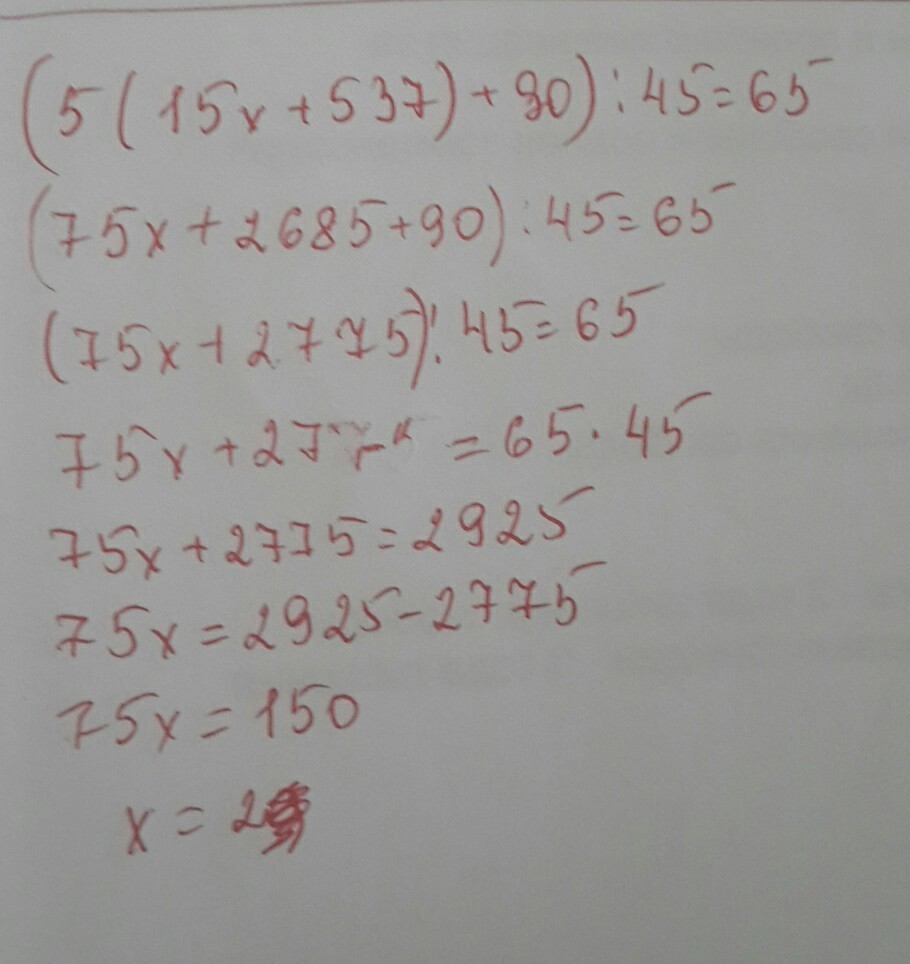 (5(15x+537)+90):45=65
(75x+2685+90):45=65
(75x+2775):45=65
75x+27 =65·45
75x+2775=2925
75x=2925-2775
75x=150
x=2